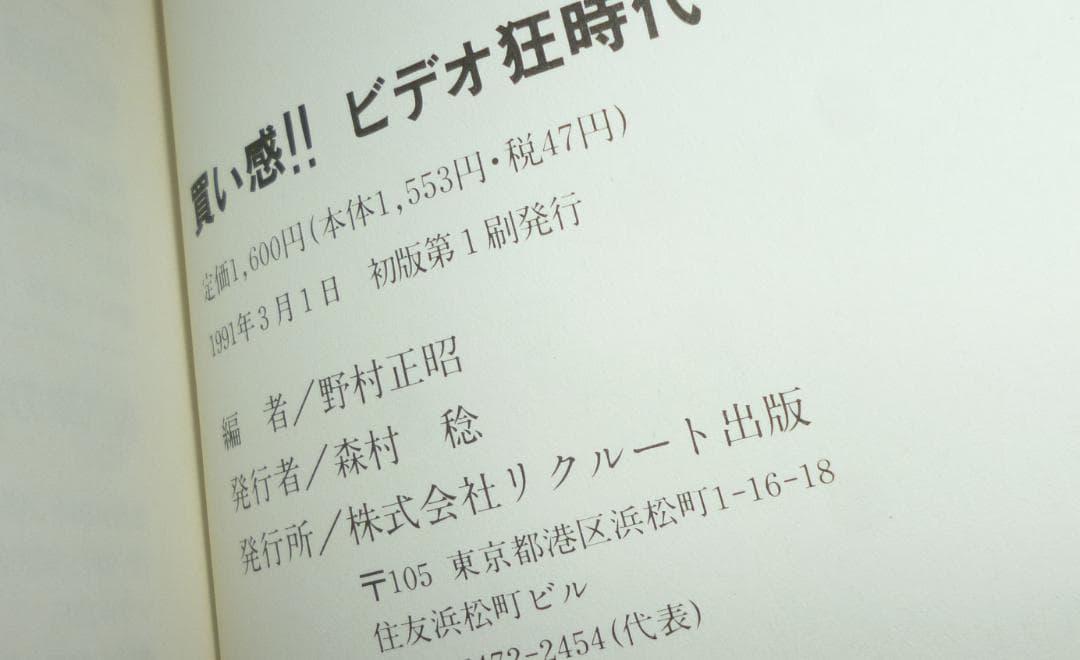 買い感!! ビデオ狂時代
定価1,600円(本体1,553円・税47円)
1991年3月1日 初版第1刷発行
編 者/野村正昭
発行者/森村 稔
発行所/株式会社リクルート出版
〒105 東京都港区浜松町1-16-18
住友浜松町ビル
-2454(代表)